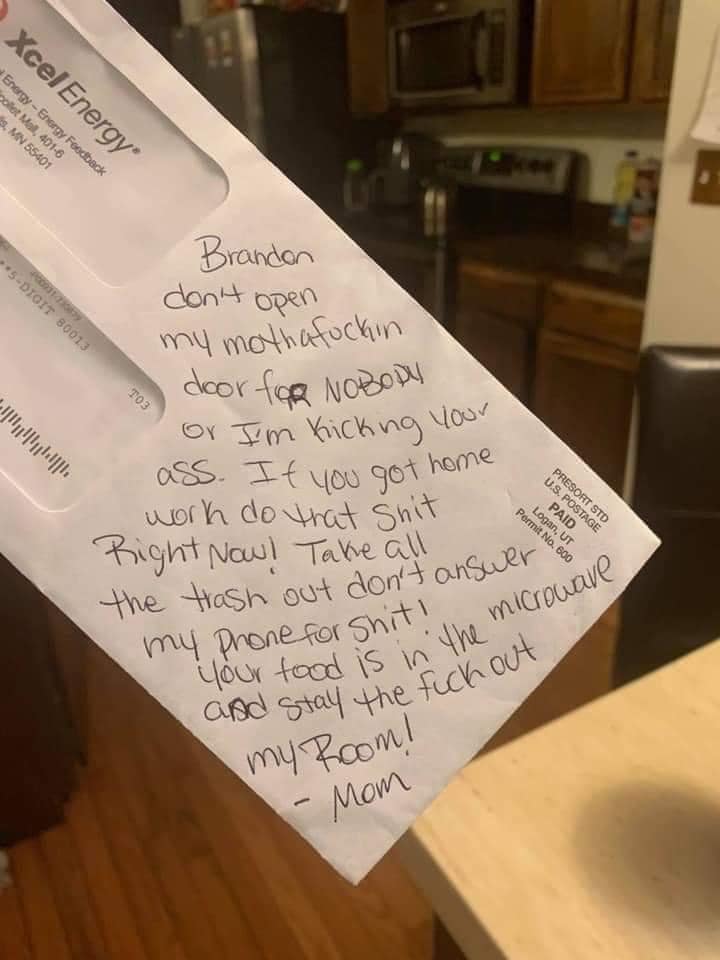 Xcel Energy®
Energy - Energy Feedback
Mall, 401-6
MN 55401
5-DIGIT 80013
T03
Brandon
don't open
my mothafuckin
door foR NOBODY
or I'm kicking your
ass. If you got home
work do that shit
Right Now! Take all
the trash out don't answer
my phone for shit!
your food is in the microwave
and stay the fuck out
my Room!
- Mom
PRESORT STD
U.S. POSTAGE
PAID
Logan, UT
Permit No. 600